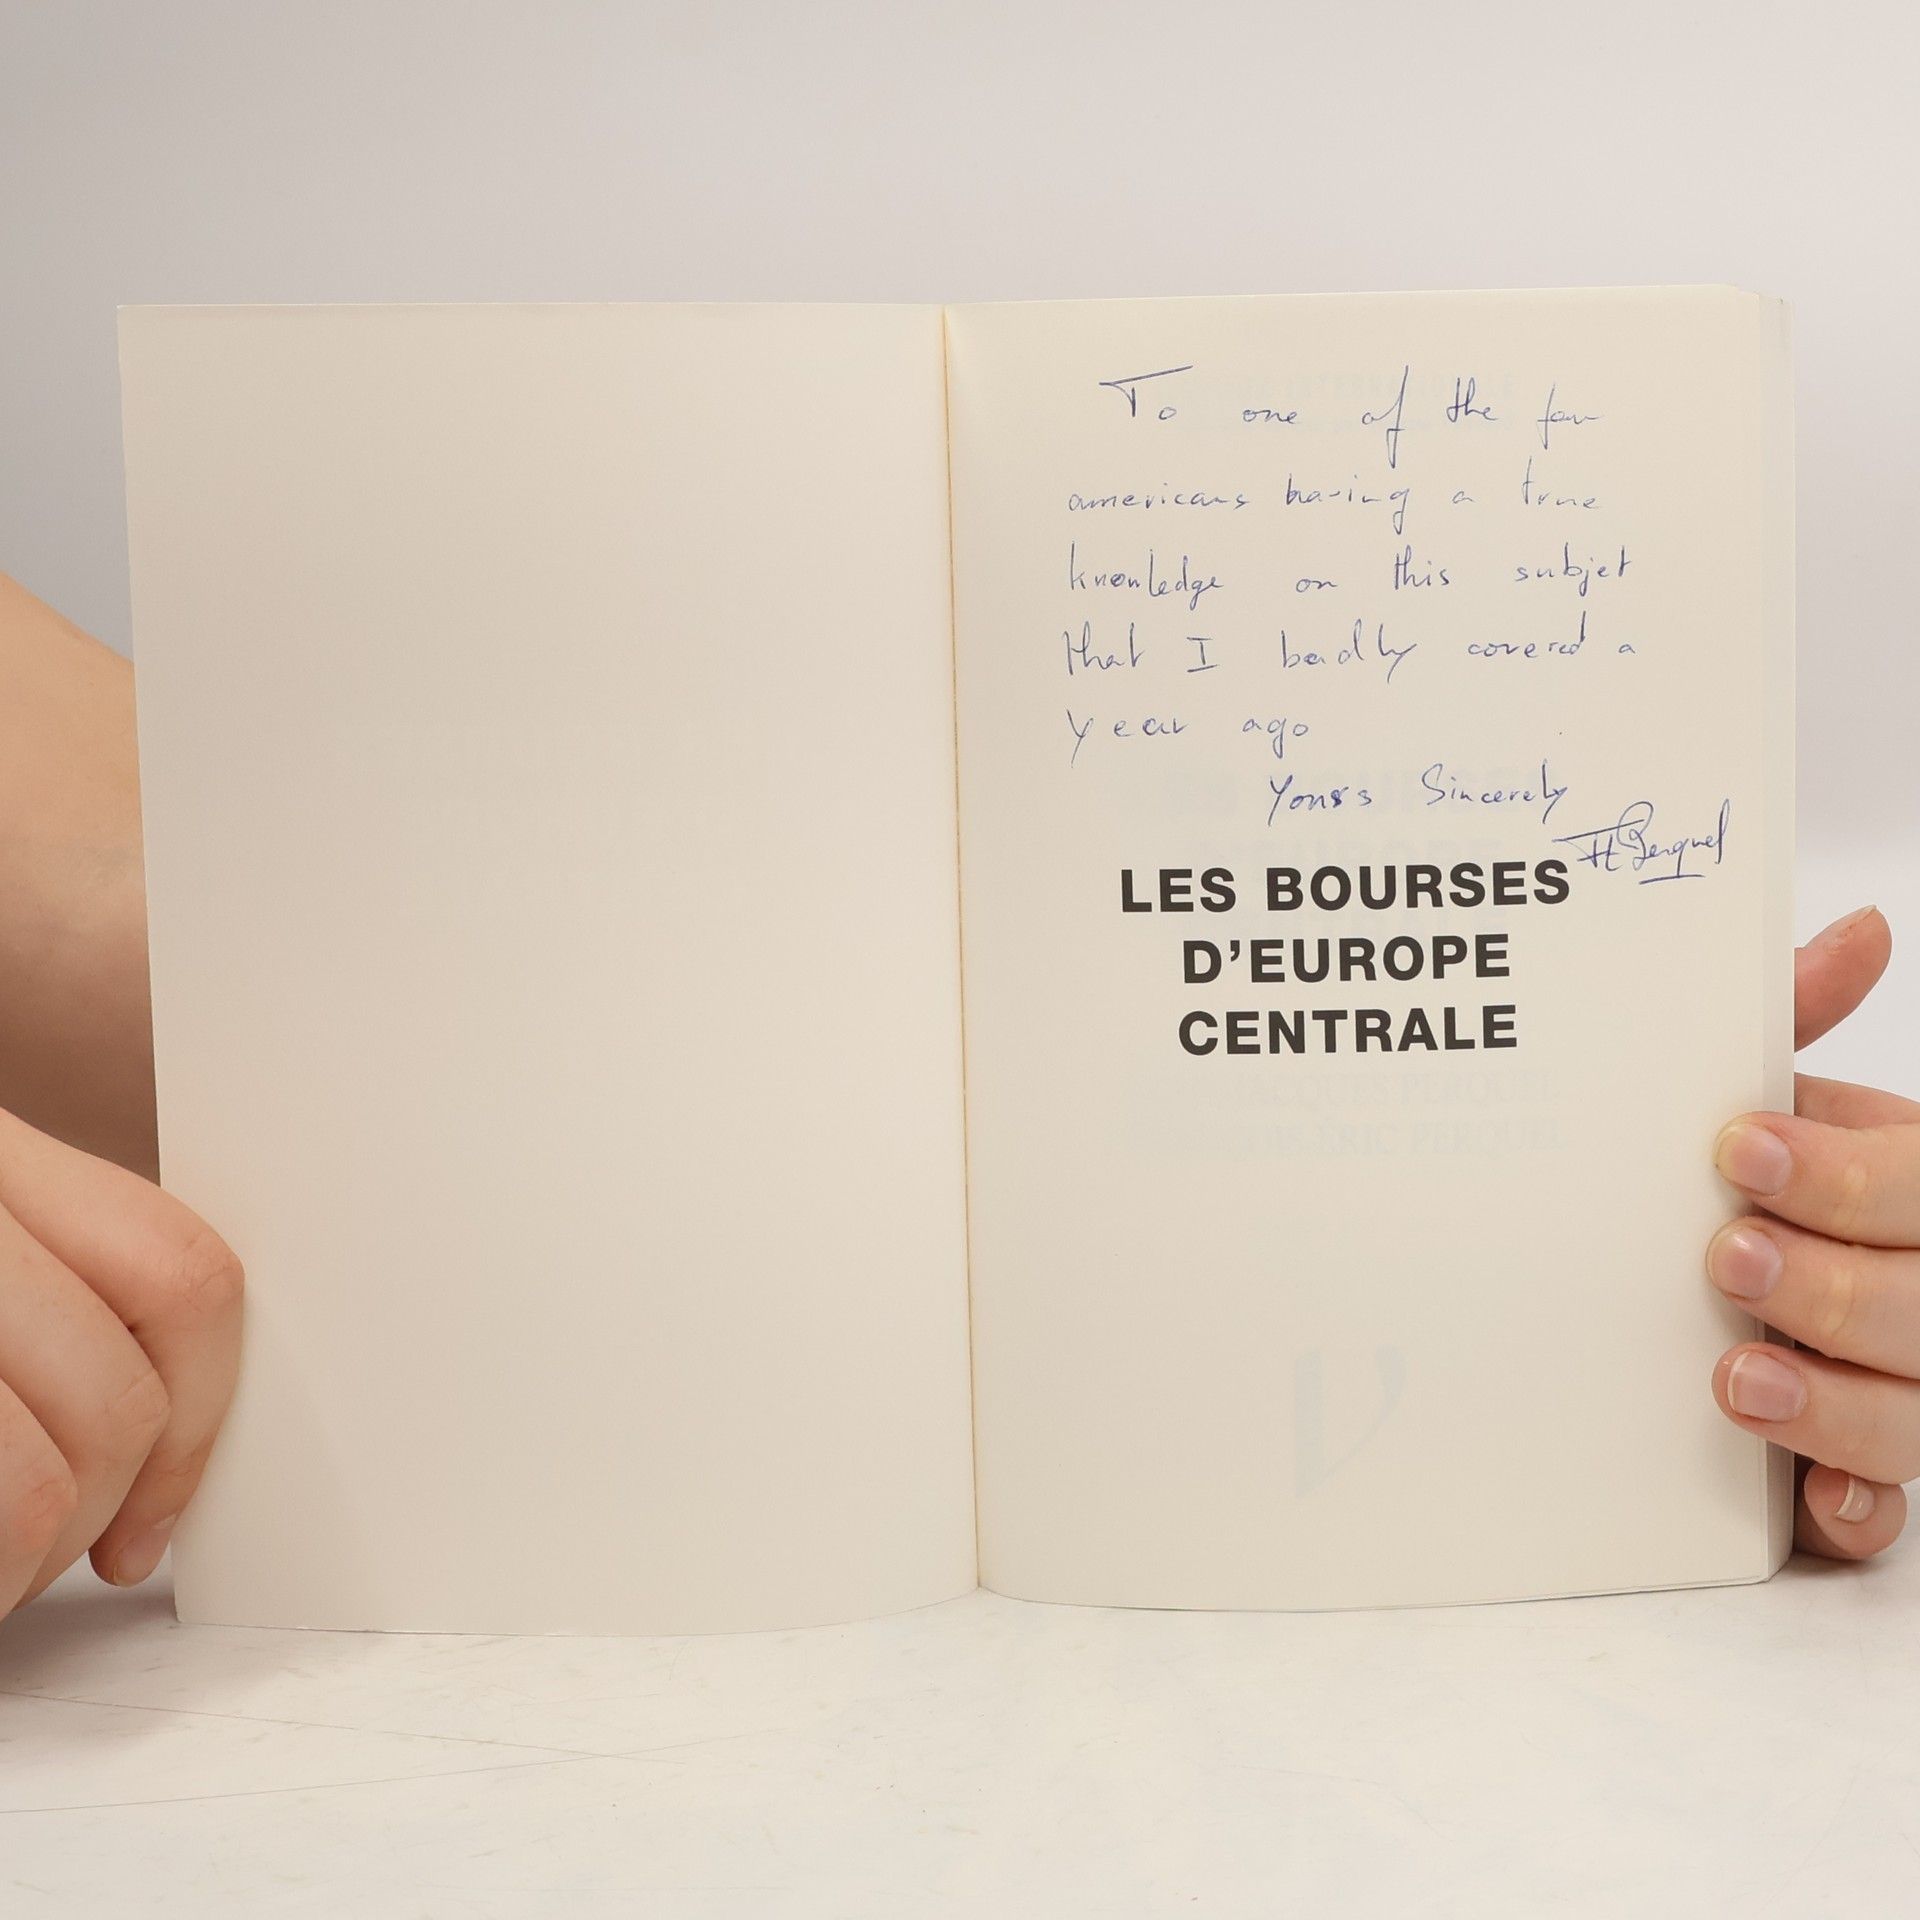 To one of the few
americans having a true
knowledge on this subjet
that I badly covered a
year ago
Yours Sincerely
Perquel
LES BOURSES
D'EUROPE
CENTRALE
JACQUES PERQUEL
ERIC PERQUEL